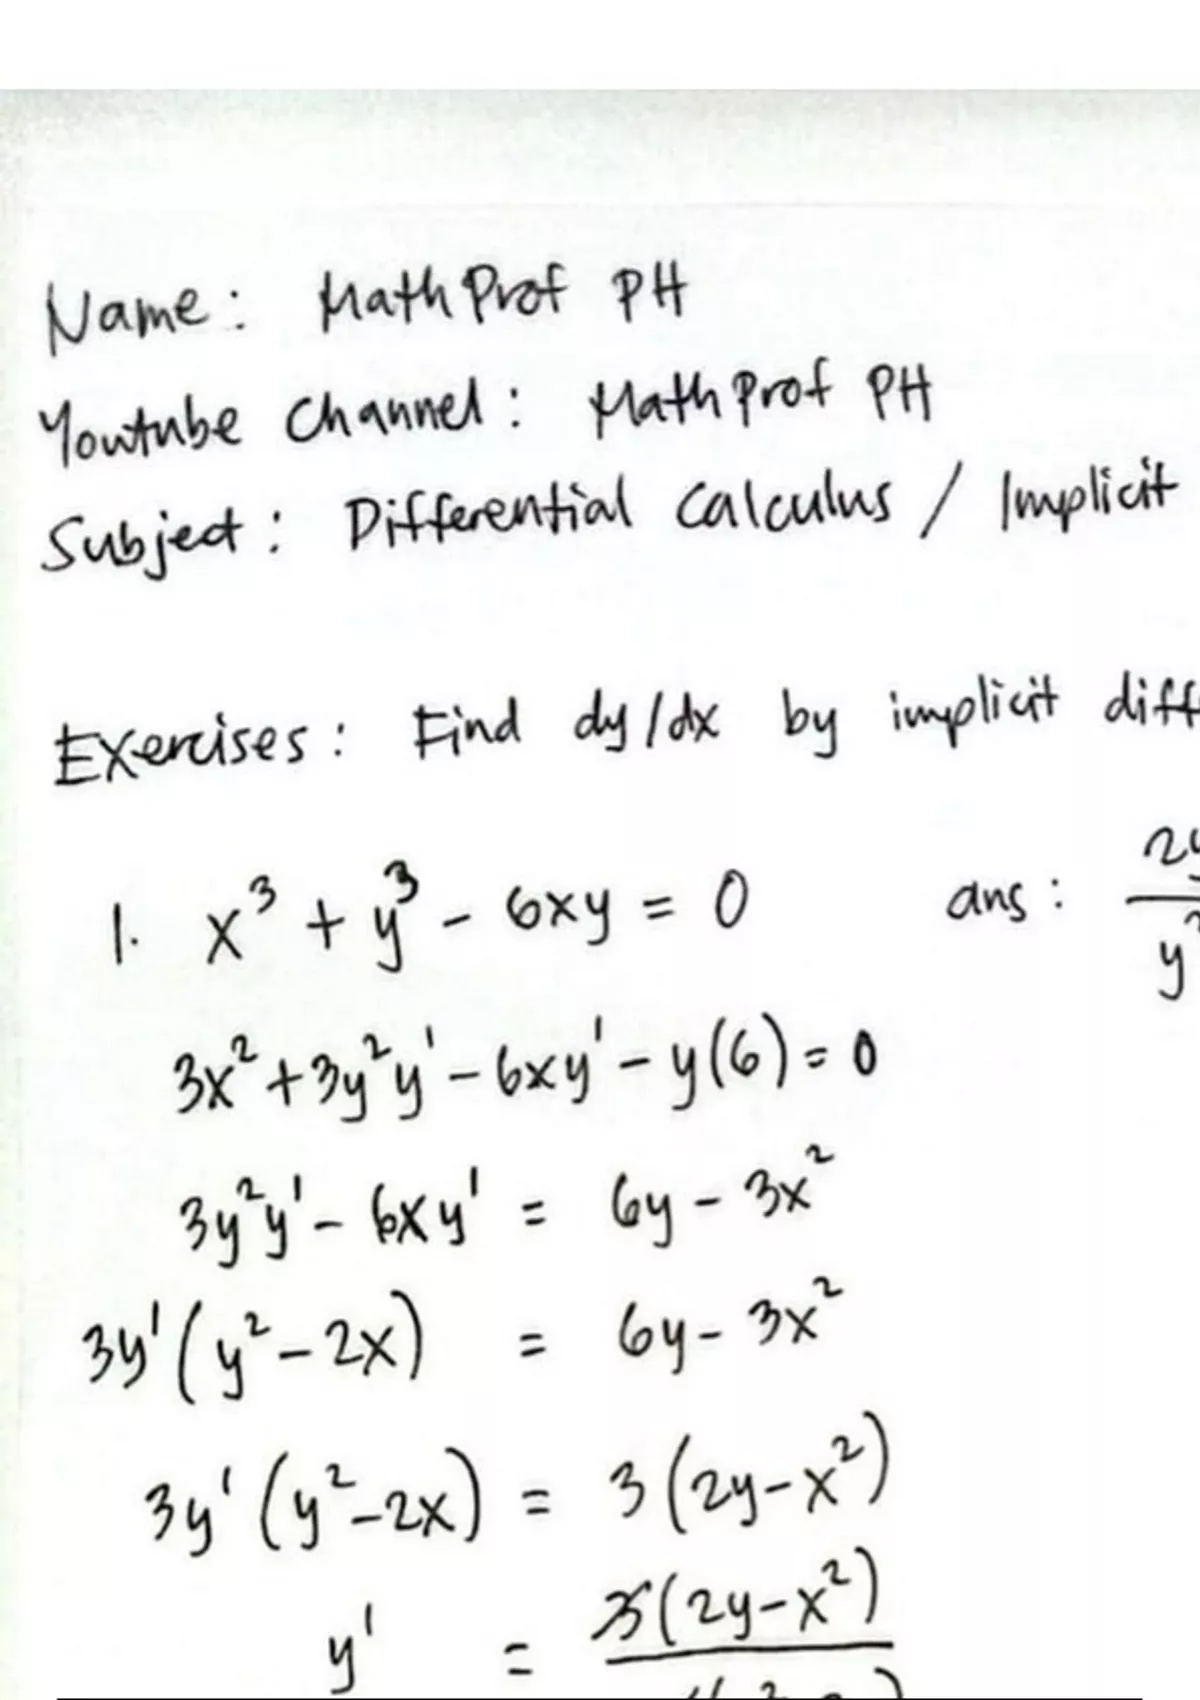 Name: MathProf PH
Youtube Channel: MathProf PH
Subject: Differential Calculus / Implicit
Exercises: Find dy/dx by implicit diff
1. x³ + y³ - 6xy = 0 ans:
3x² + 3y²y' - 6xy' - y(6) = 0
3y²y' - 6xy' = 6y - 3x²
3y'(y² - 2x) = 6y - 3x²
3y'(y² - 2x) = 3(2y - x²)
y' = 3(2y - x²)